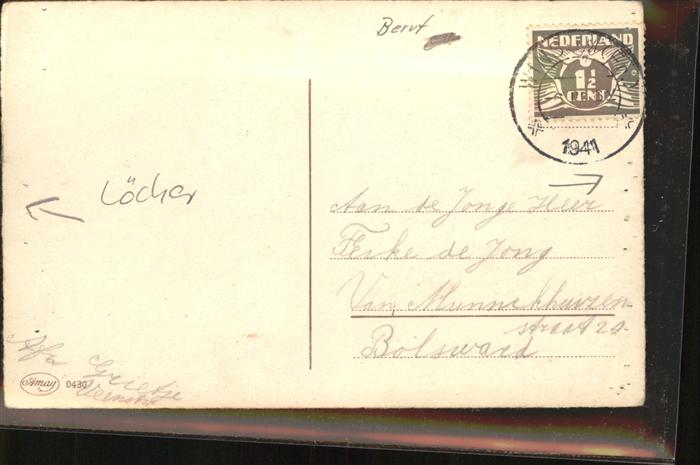 Beruf
NEDERLAND
1½
CENT
1941
Löcher
Aan de Jonge Heer
Feike de Jong
Van Munnikhuizen-
straat 29
Bolsward
Afz
Grietje
Amag 0430